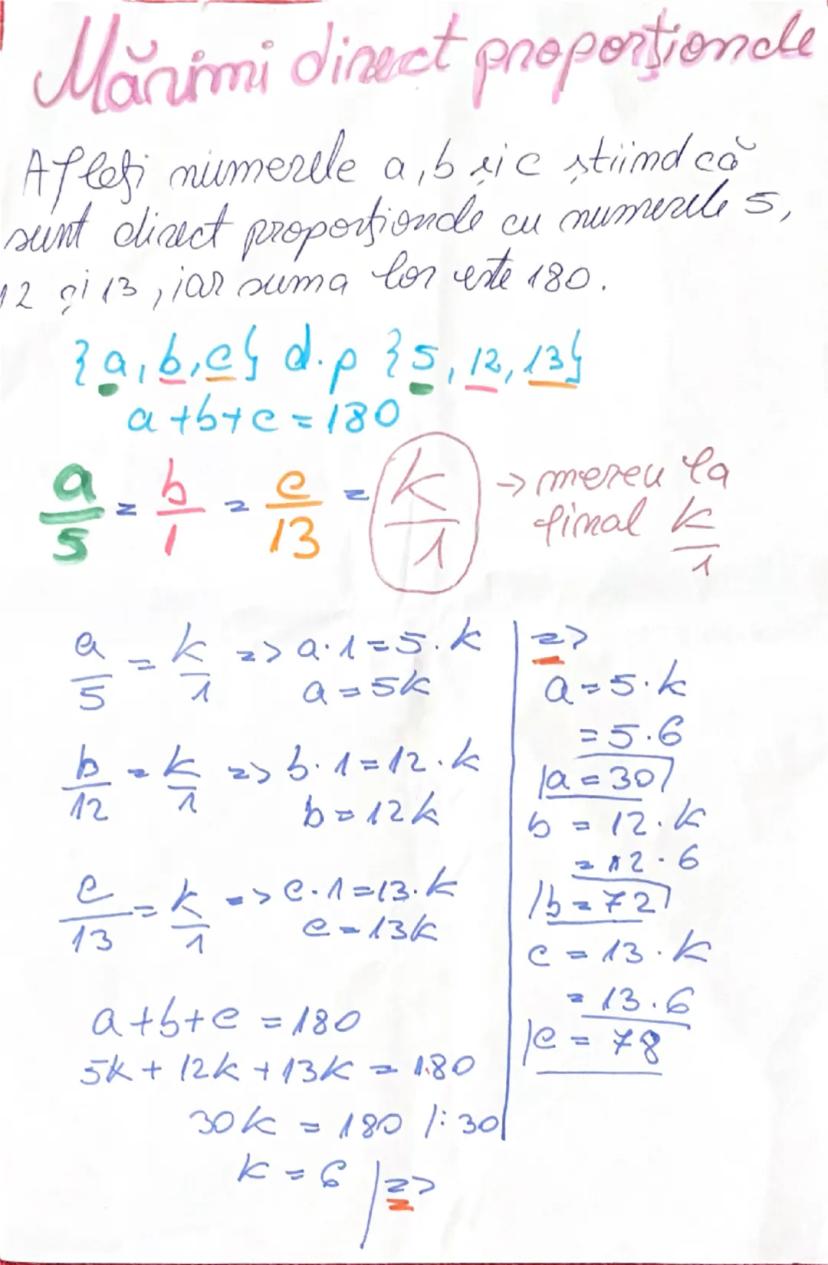 Mărimi direct proporționale
Aflați numerele a, b și c știind că
sunt direct proporționale cu numerele 5,
12 și 13, iar suma lor este 180.
{a, b, c} d.p {5, 12, 13}
a+b+c = 180
a/5 = b/1 = c/13 = k/1 → mereu la
final k/1
a/5 = k/1 => a·1=5·k
a=5k
b/12 = k/1 => b·1=12·k
b=12k
c/13 = k/1 => c·1=13·k
c=13k
a+b+c = 180
5k + 12k + 13k = 180
30k = 180 /:30
k = 6 |=>
=>
a=5·k
=5·6
|a=30|
b = 12·k
=12·6
|b=72|
c = 13·k
= 13·6
|c = 78